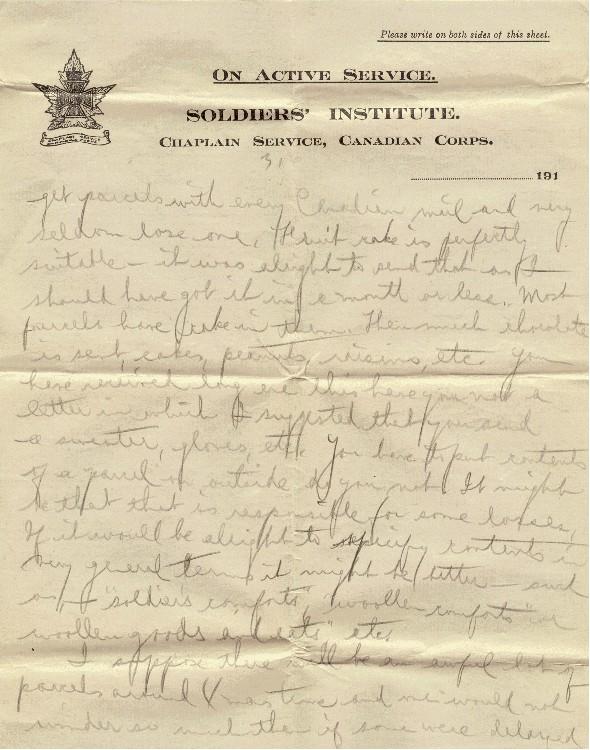 Please write on both sides of this sheet.
ON ACTIVE SERVICE.
SOLDIERS' INSTITUTE.
CHAPLAIN SERVICE, CANADIAN CORPS.
3,
191
get parcels with every Canadian mail and very
seldom lose one. Fruit cake is perfectly
suitable – it was alright to send that as I
should have got it in a month or less. Most
parcels have cake in them. Then much chocolate
is sent, cakes, peanuts, raisins, etc. You
have received long ere this
letter in which I suggested that you send
a sweater, gloves, etc. You have to put contents
of a parcel on outside do you not. It might
be that that is responsible for some losses.
If it would be alright to specify contents in
very general terms it might be better – such
as "soldier's comforts", "woollen comforts" or
woollen goods & eats" etc.
I suppose there will be an awful lot of
parcels around Xmas time and we would not
wonder so much then if some were delayed